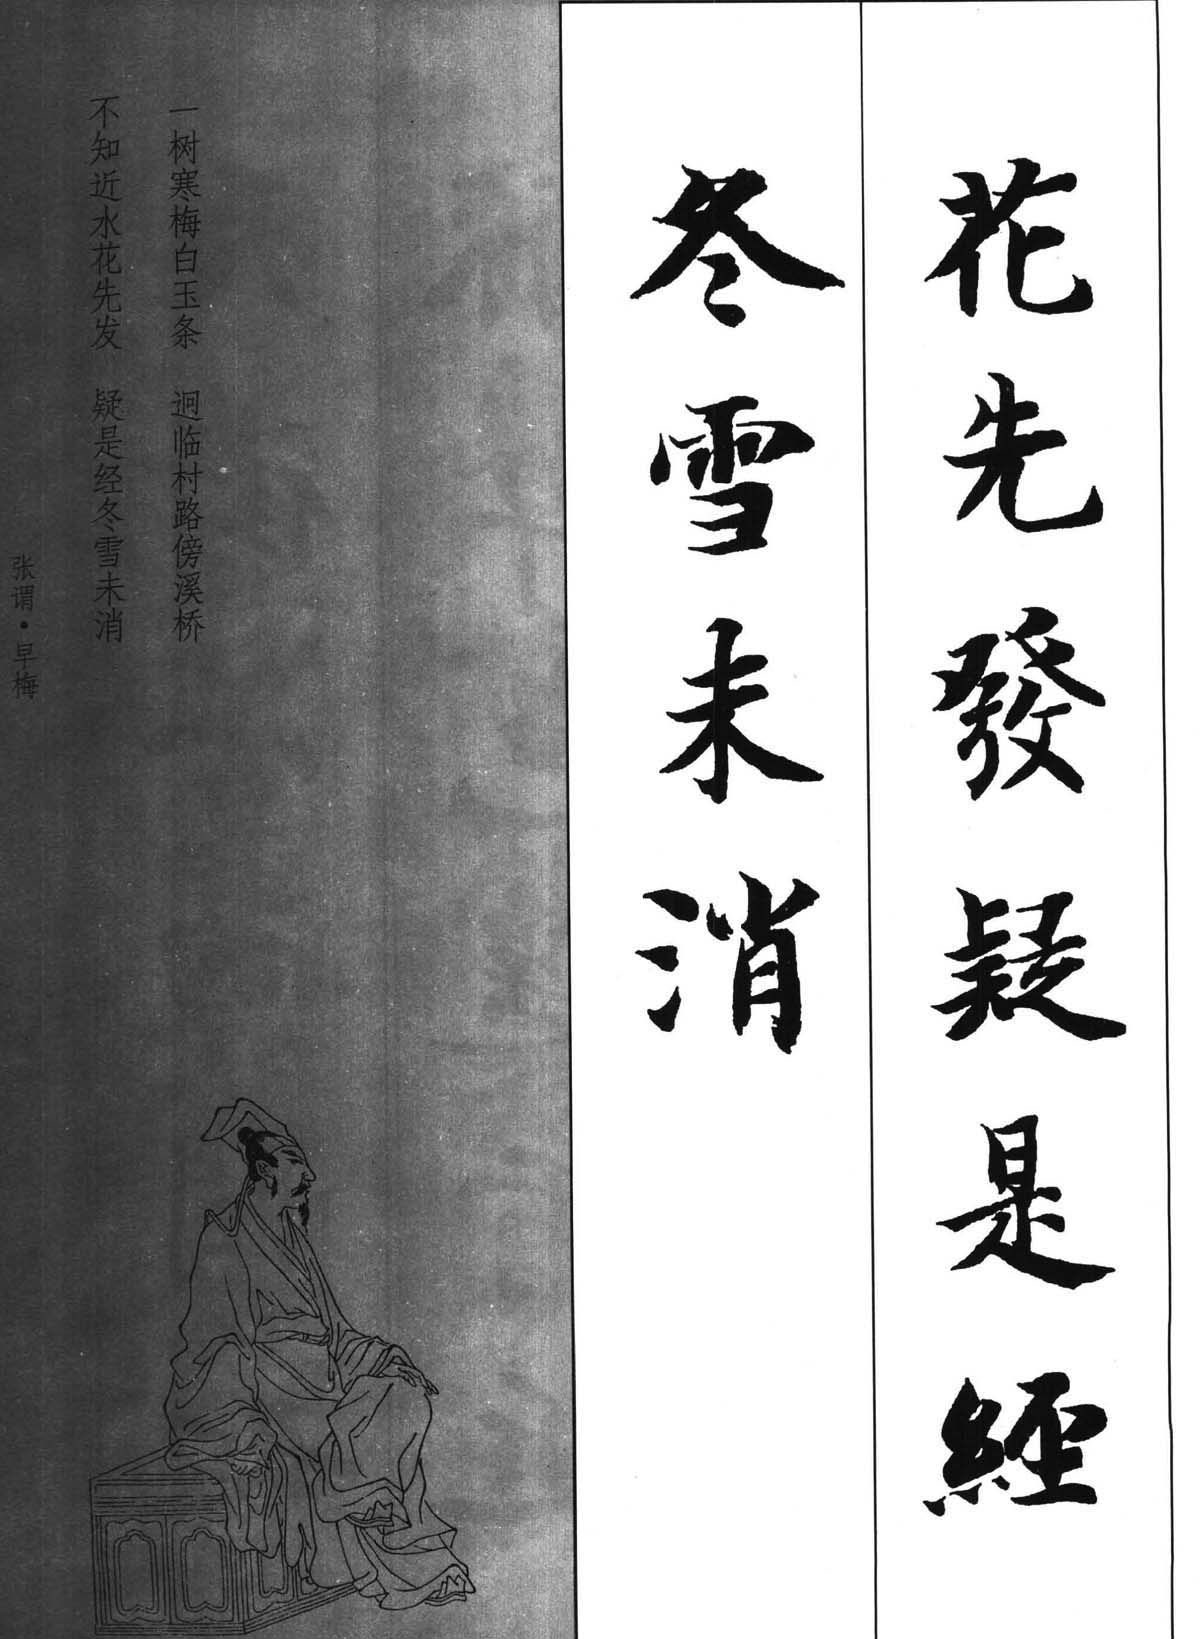 花先發疑是經
冬雪未消
一树寒梅白玉条 迥临村路傍溪桥
不知近水花先发 疑是经冬雪未消
张谓·早梅